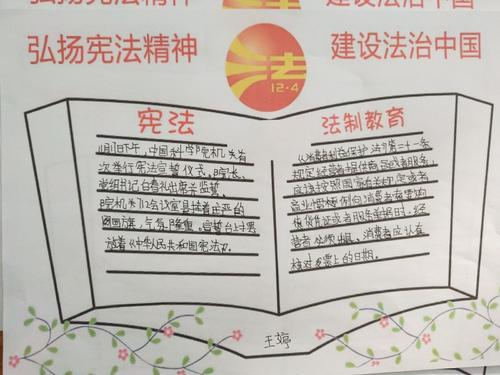 弘扬宪法精神
建设法治中国
弘扬宪法精神
法
12·4
建设法治中国
宪法
11月1日下午，中国科学院机关首
次举行宪法宣誓仪式。院长、
党组书记白春礼出席并监誓。
院机关112会议室悬挂着庄严的
国旗，气氛隆重。宣誓台上摆
放着《中华人民共和国宪法》。
法制教育
《消费者权益保护法》第二十一条
规定经营者提供商品或者服务，
应该按照国家有关规定或者
商业惯例向消费者索要购
货凭证或者服务单据时，经
营者必须出具。消费者应认真
核对发票上的日期。
王婷